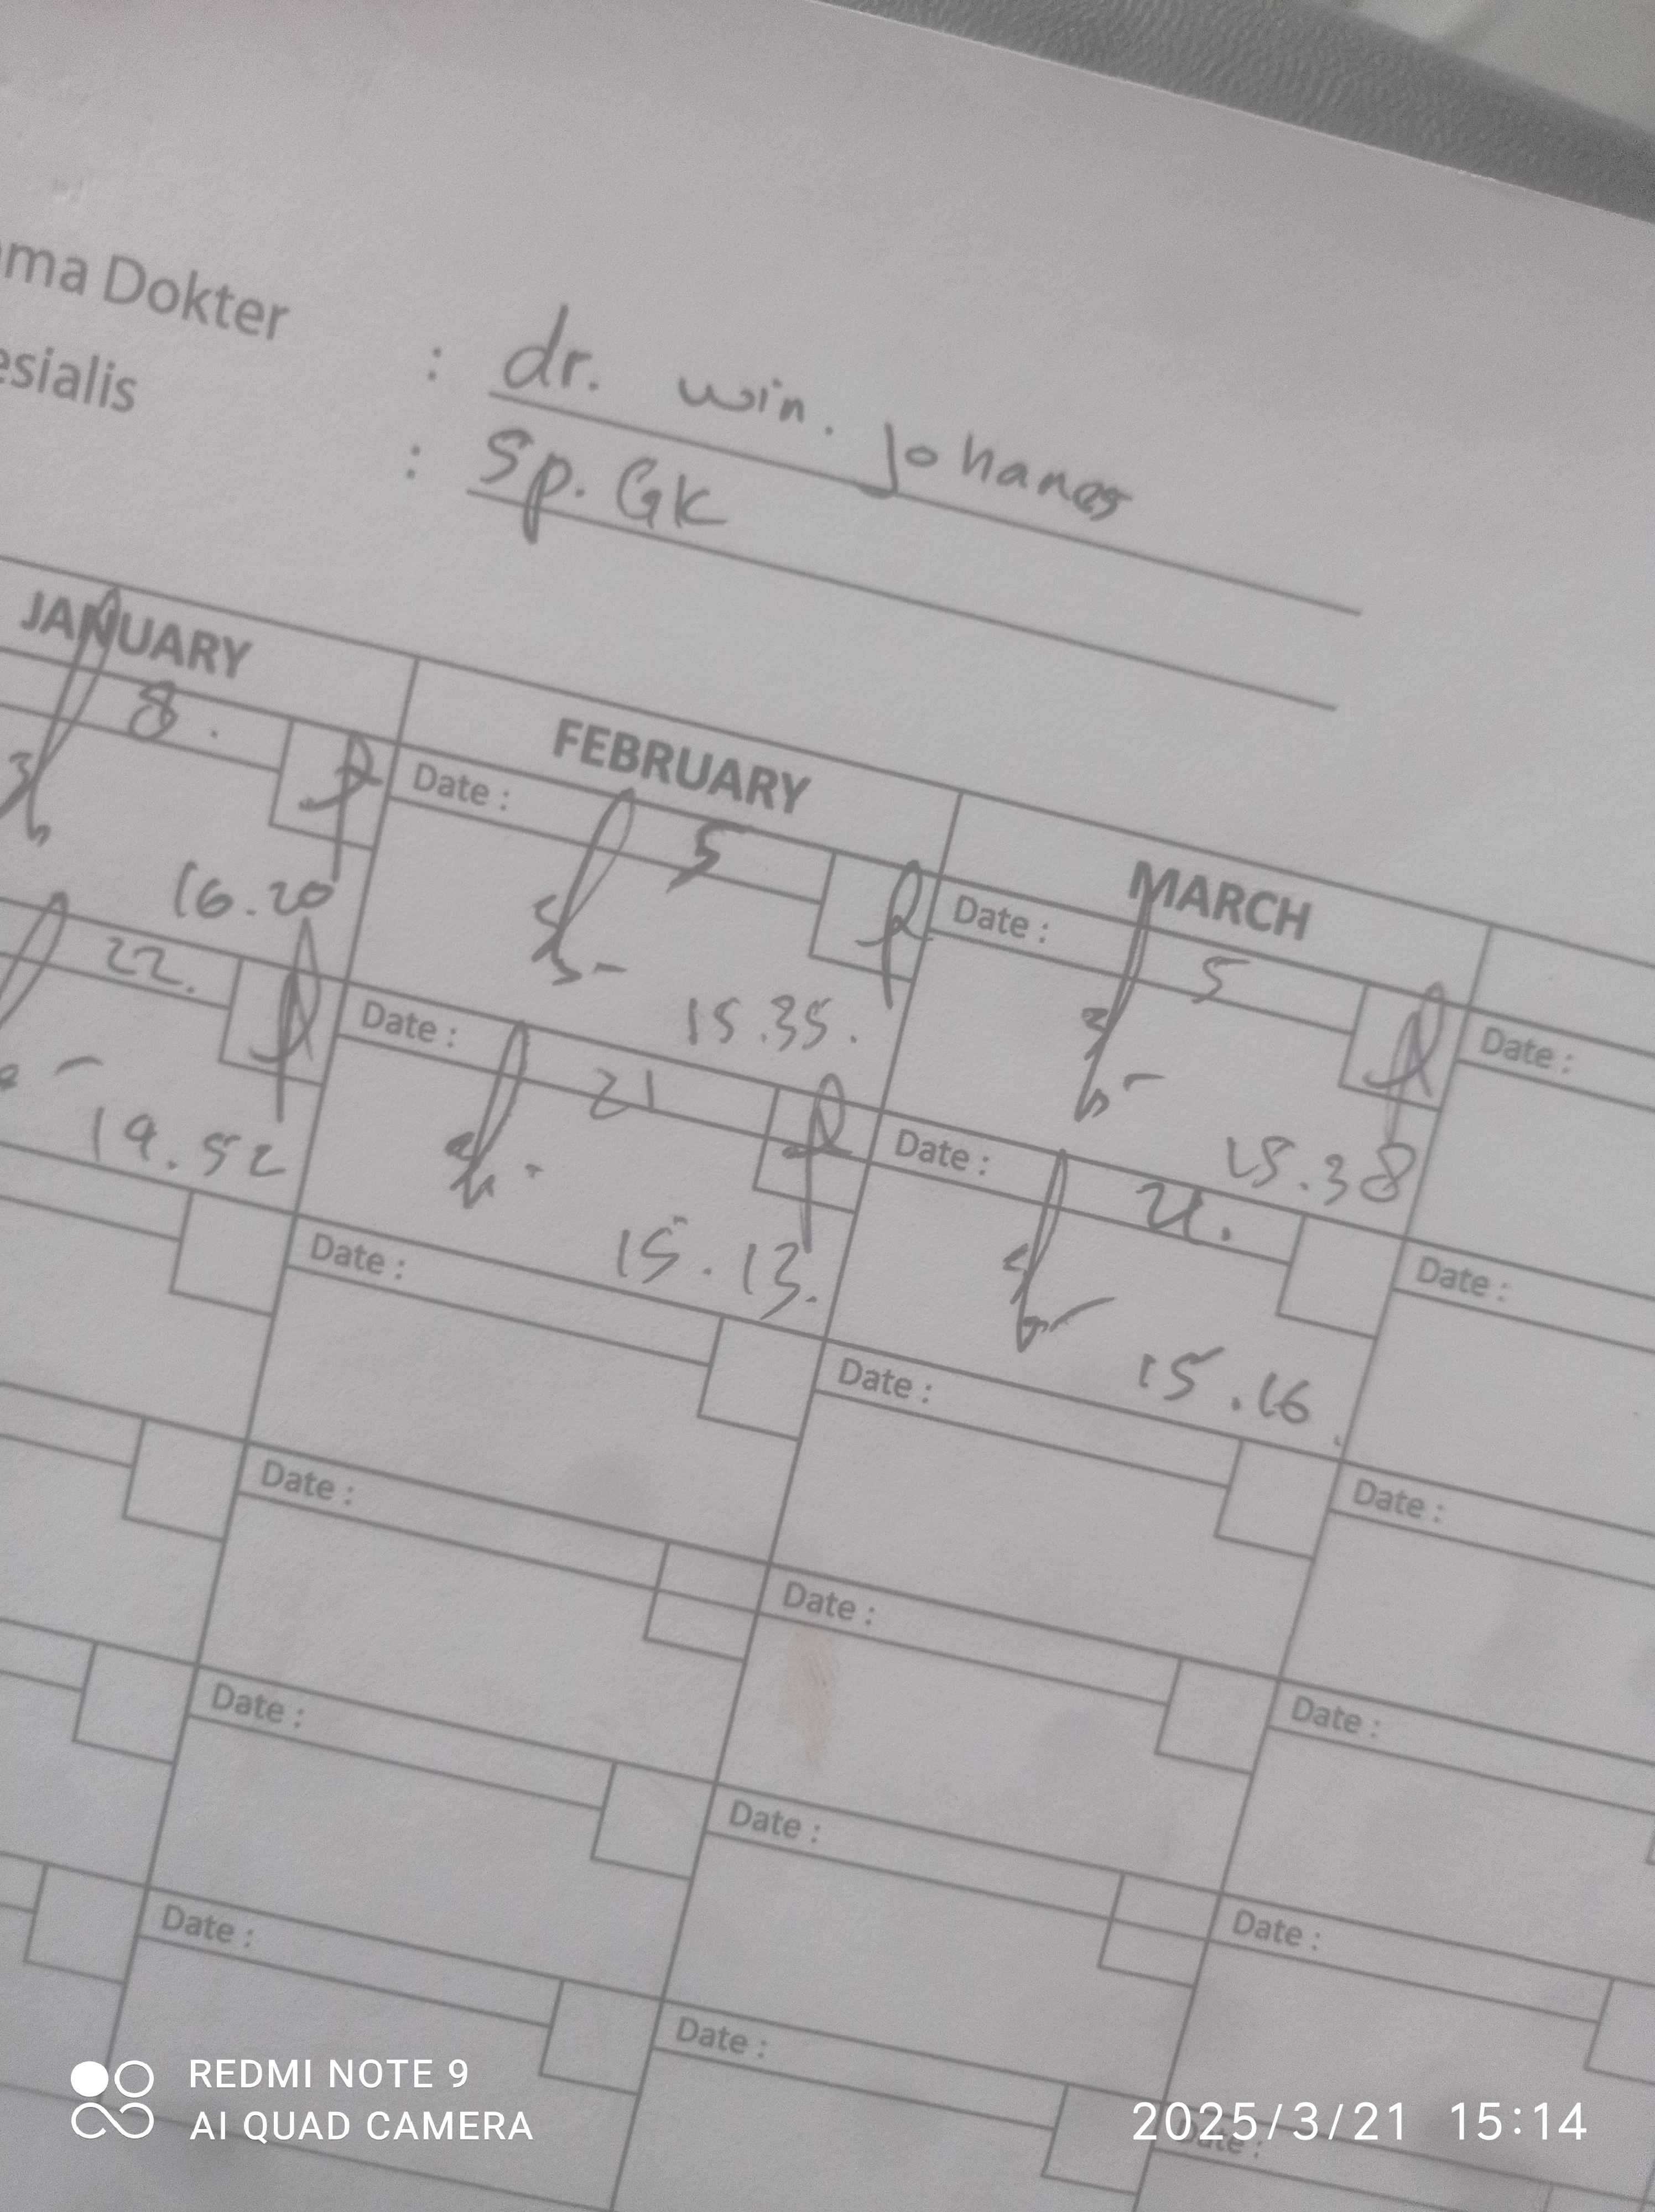 ma Dokter : dr. win. Johanes
esialis : Sp. GK
JANUARY FEBRUARY MARCH
8. Date : 5 Date : 5 Date :
16.20 15.35. 15.38
22. Date : 21 Date : 21. Date :
19.52 15.13. 15.16
Date : Date : Date :
Date : Date : Date :
Date : Date : Date :
Date : Date : Date :
REDMI NOTE 9
AI QUAD CAMERA
2025/3/21 15:14